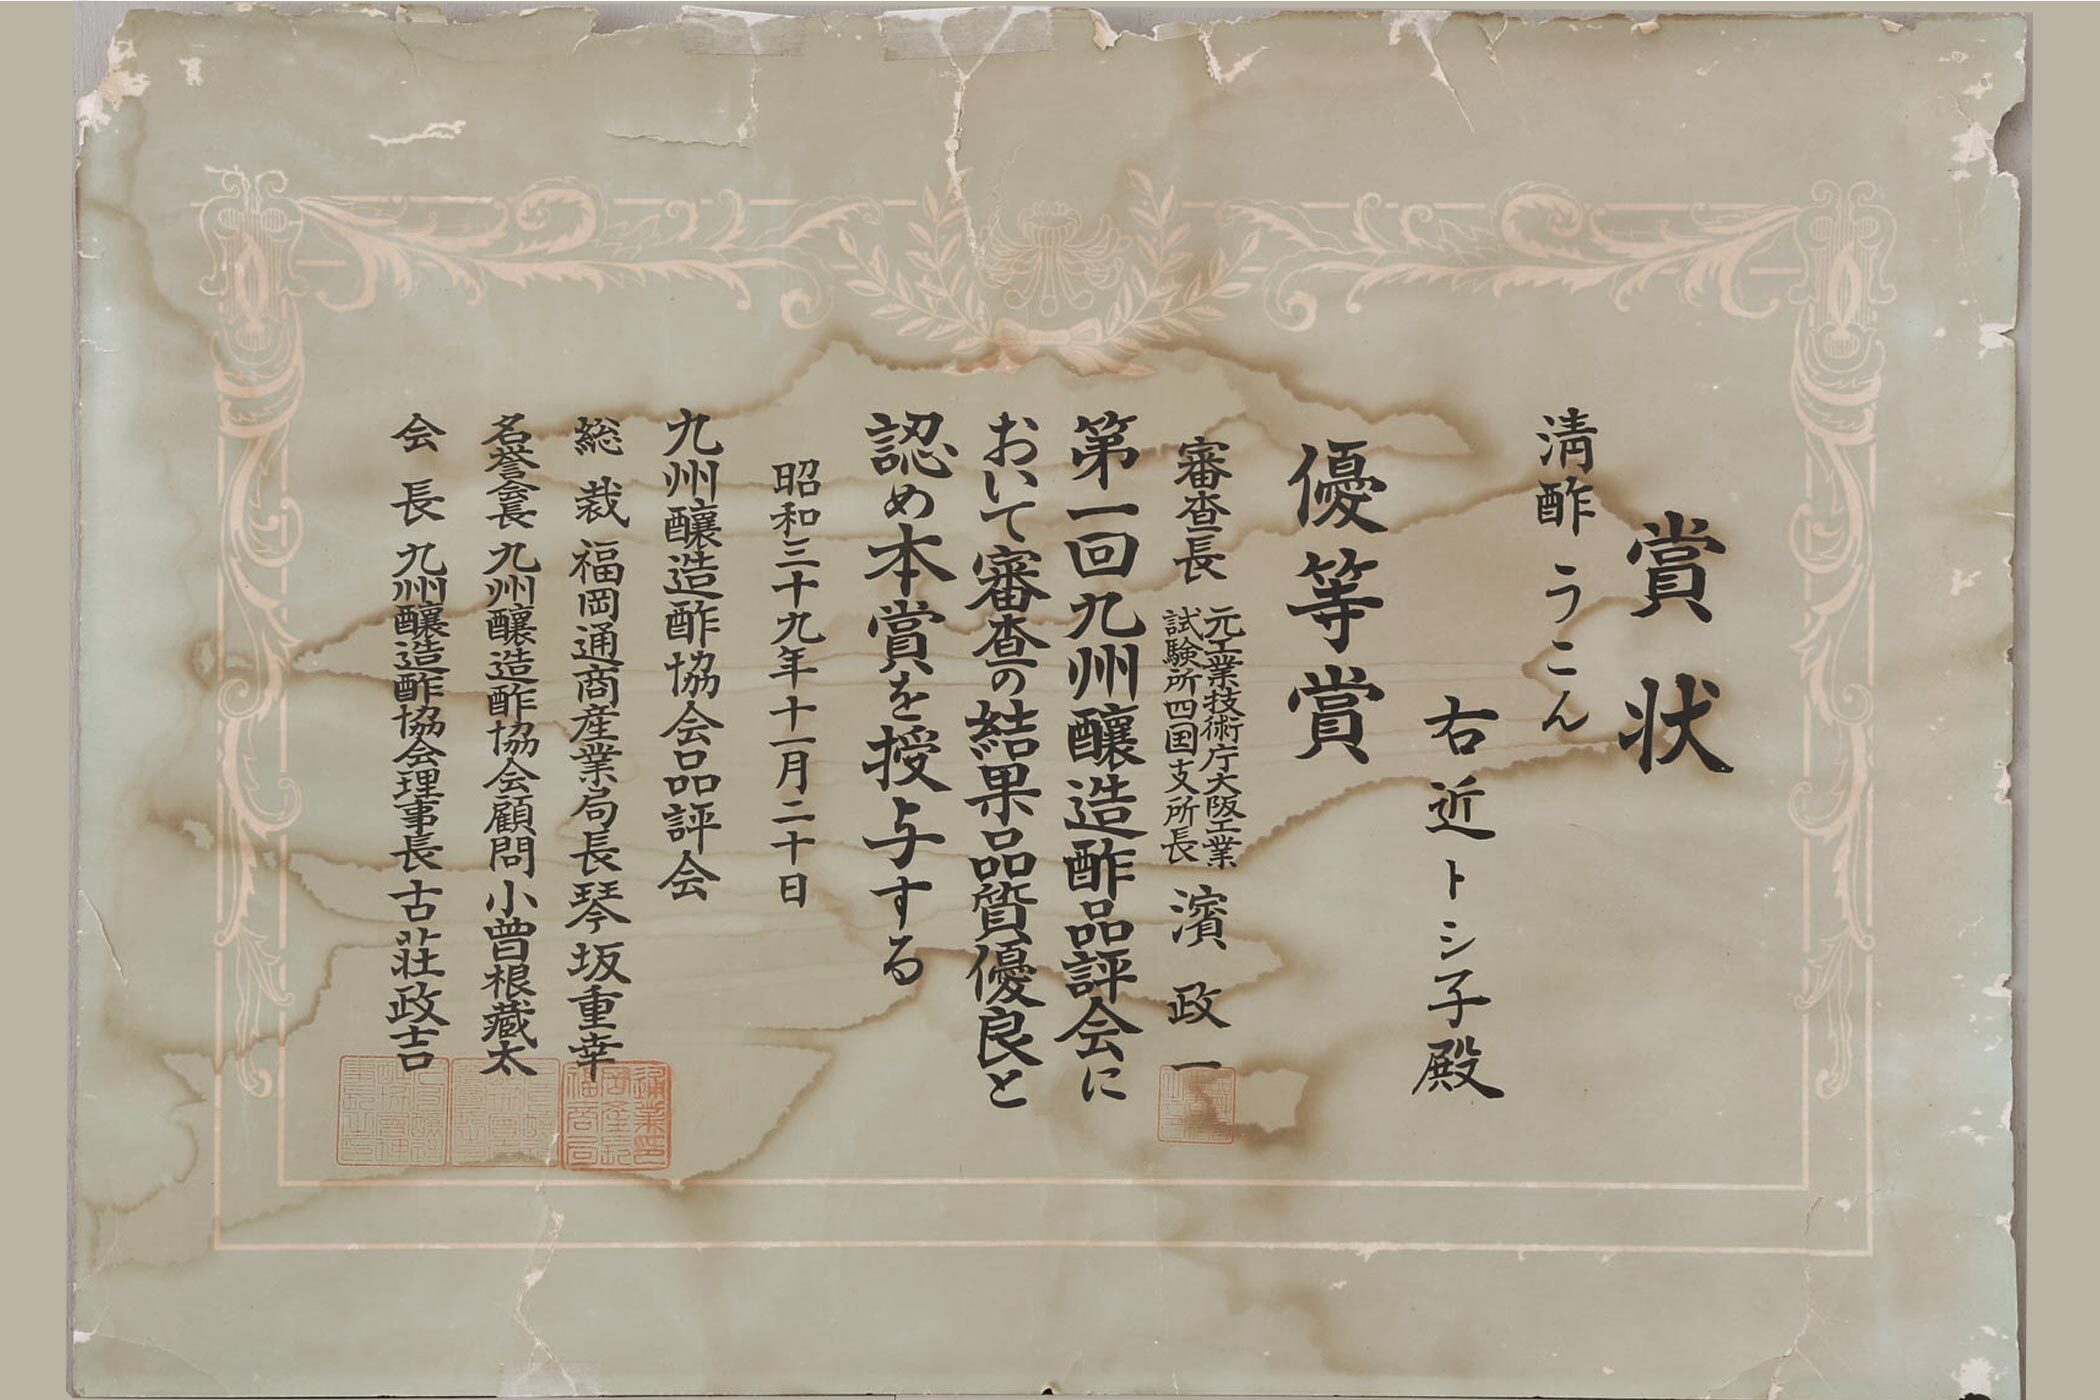 賞状
清酢 うこん
右近トシ子殿
優等賞
審査長 元工業技術庁大阪工業
試験所四国支所長 濱政一
第一回九州醸造酢品評会に
おいて審査の結果品質優良と
認め本賞を授与する
昭和三十九年十一月二十日
九州醸造酢協会品評会
総裁 福岡通商産業局長 琴坂重幸
名誉会長 九州醸造酢協会顧問 小曽根藏太
会長 九州醸造酢協会理事長 古荘政吉